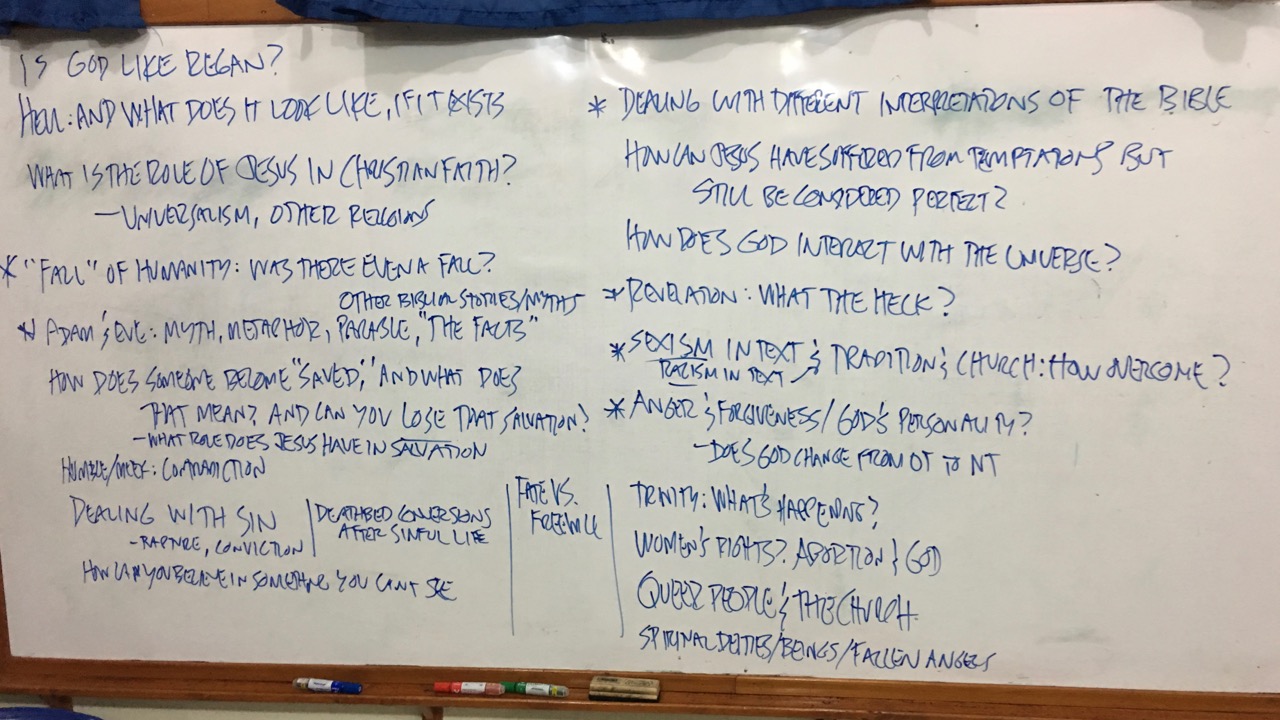 IS GOD LIKE REGAN?
HELL: AND WHAT DOES IT LOOK LIKE, IF IT EXISTS
WHAT IS THE ROLE OF JESUS IN CHRISTIAN FAITH?
— UNIVERSALISM, OTHER RELIGIONS
* "FALL" OF HUMANITY: WAS THERE EVEN A FALL?
OTHER BIBLICAL STORIES/MYTHS
* ADAM & EVE: MYTH, METAPHOR, PARABLE, "THE FACTS"
HOW DOES SOMEONE BECOME "SAVED," AND WHAT DOES
THAT MEAN? AND CAN YOU LOSE THAT SALVATION?
- WHAT ROLE DOES JESUS HAVE IN SALVATION
HUMBLE/MEEK: CONTRADICTION
DEALING WITH SIN
- RAPTURE, CONVICTION
DEATHBED CONVERSIONS
AFTER SINFUL LIFE
HOW CAN YOU BELIEVE IN SOMETHING YOU CAN'T SEE
FATE VS.
FREEWILL
* DEALING WITH DIFFERENT INTERPRETATIONS OF THE BIBLE
HOW CAN JESUS HAVE SUFFERED FROM TEMPTATIONS BUT
STILL BE CONSIDERED PERFECT?
HOW DOES GOD INTERACT WITH THE UNIVERSE?
* REVELATION: WHAT THE HECK?
* SEXISM IN TEXT & TRADITION & CHURCH: HOW OVERCOME?
RACISM IN TEXT
* ANGER & FORGIVENESS/GOD'S PERSONALITY?
- DOES GOD CHANGE FROM OT TO NT
TRINITY: WHAT'S HAPPENING?
WOMEN'S RIGHTS? ABORTION & GOD
QUEER PEOPLE & THE CHURCH
SPIRITUAL DEITIES/BEINGS/FALLEN ANGELS